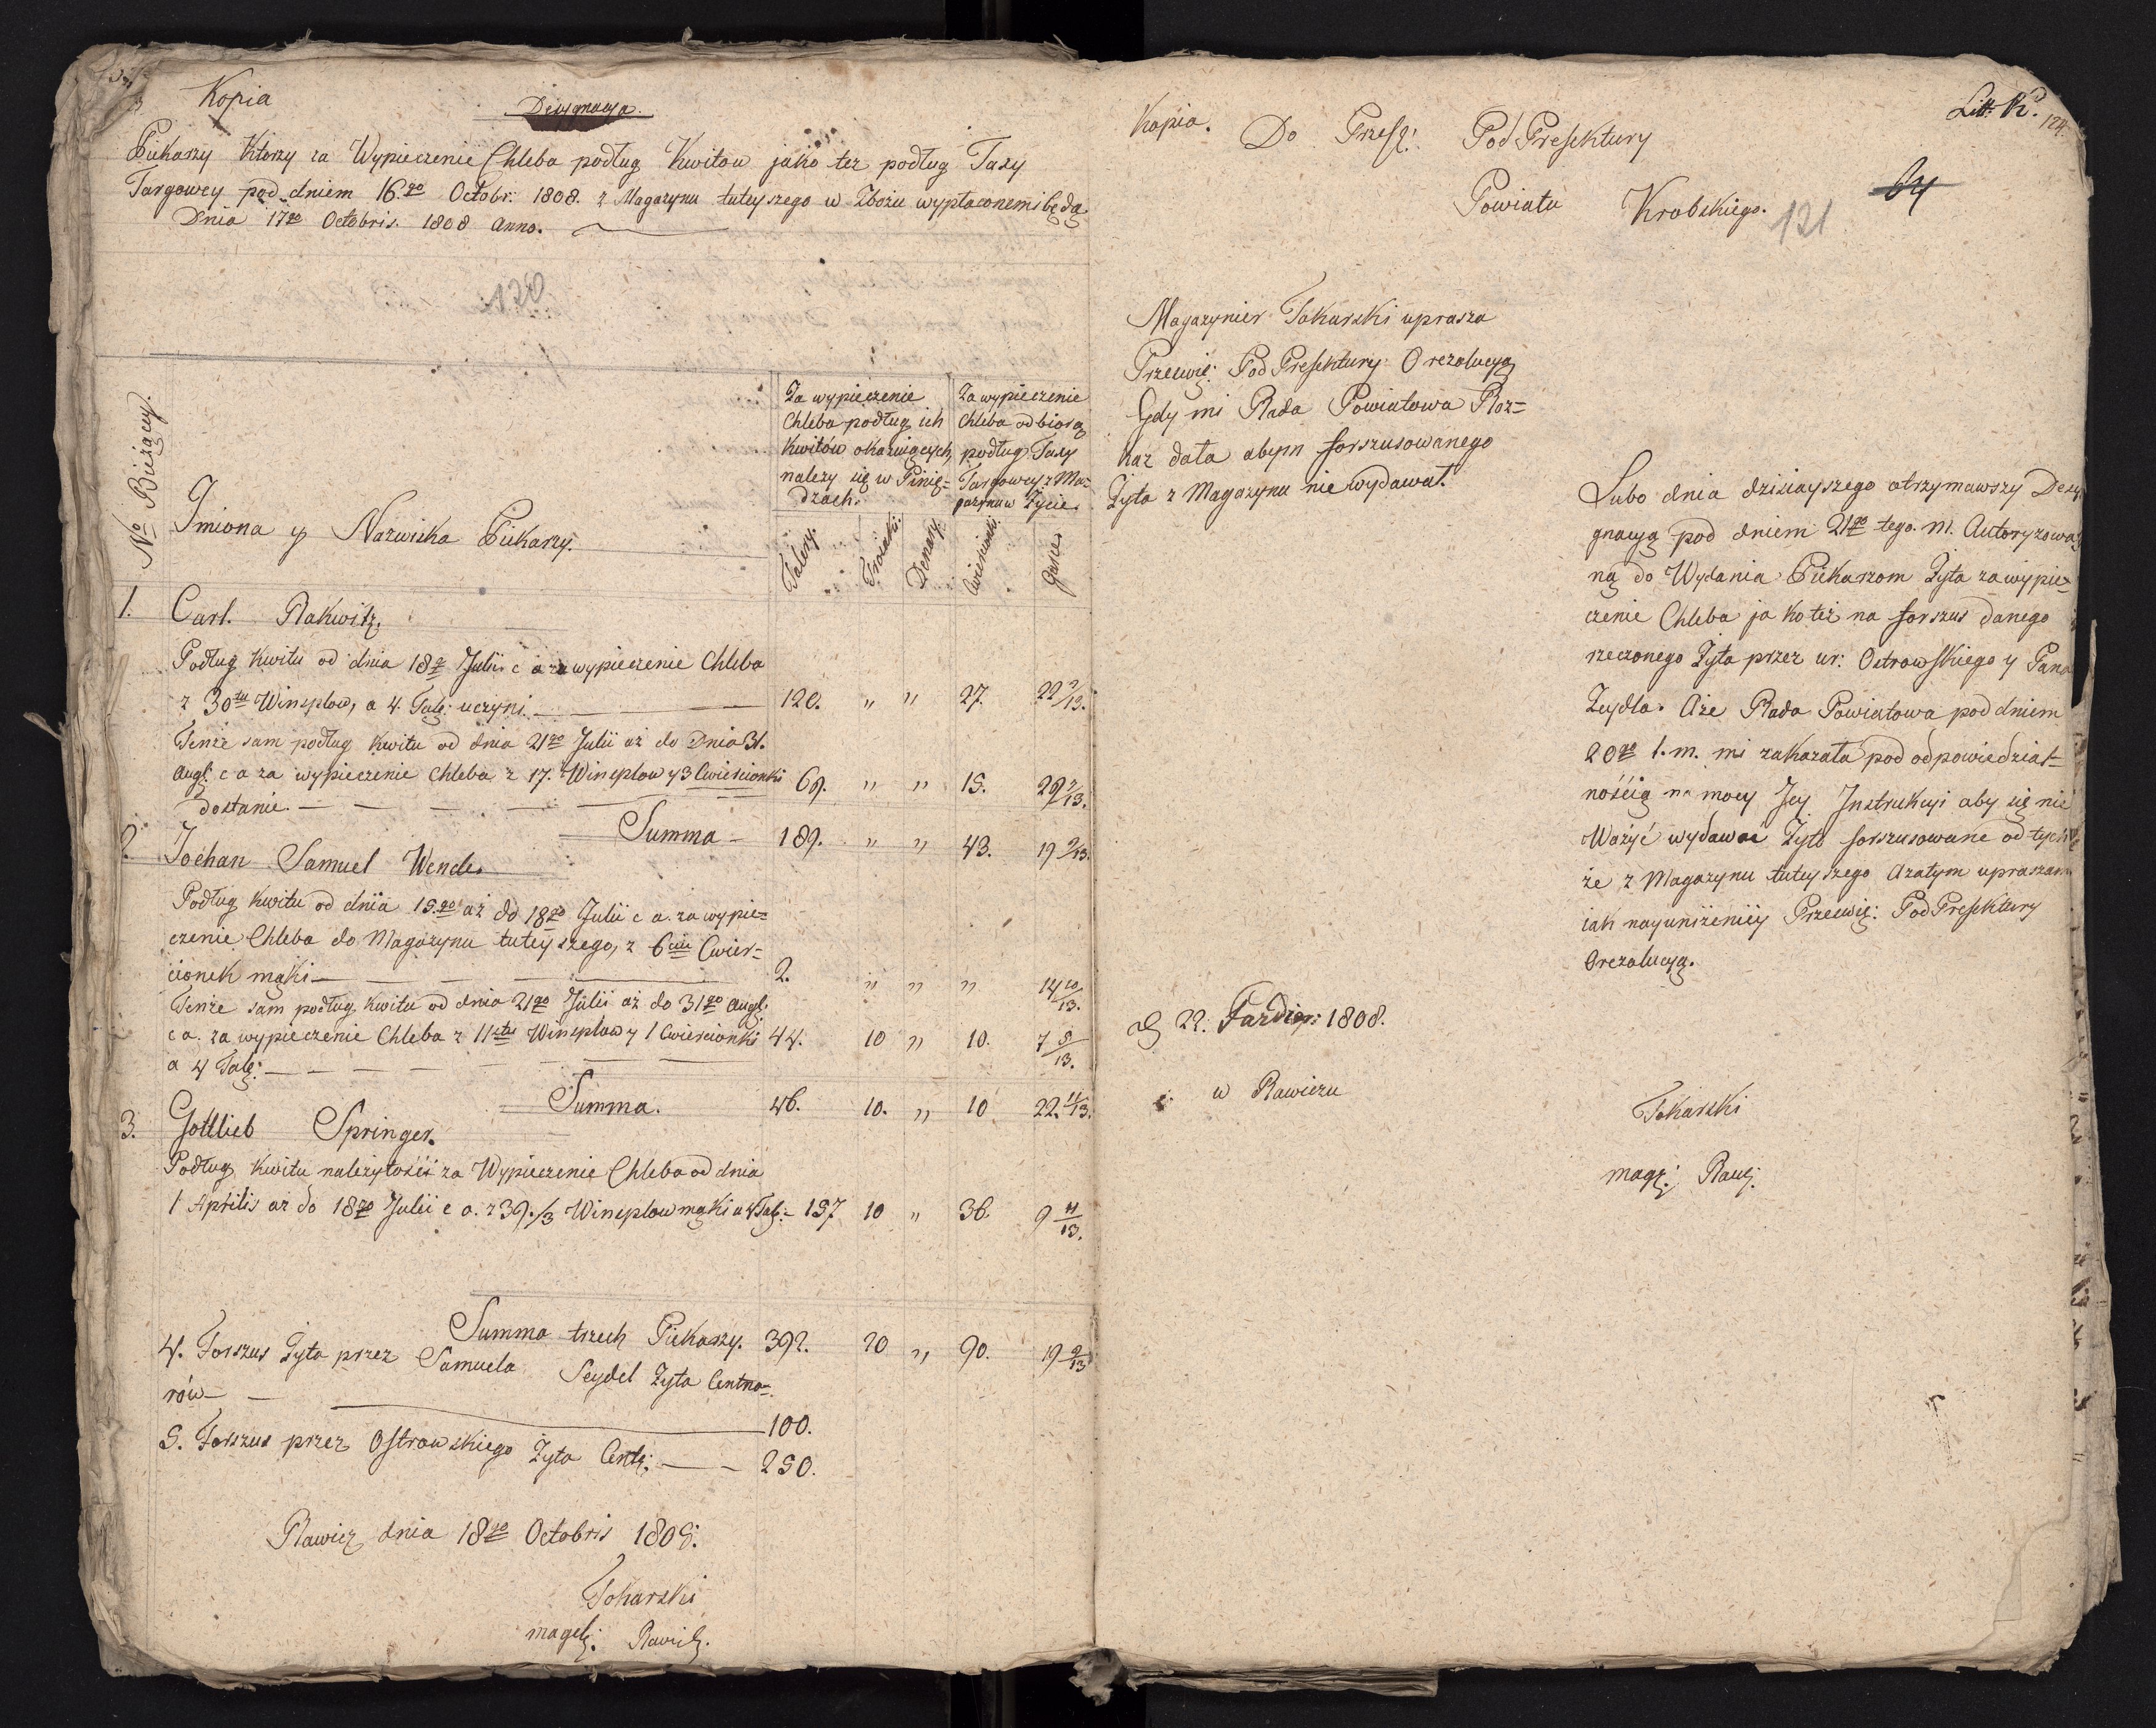 Kopia
Desygnacya.
Piekarzy Ktorzy za Wypieczenie Chleba podług Kwitow jako też podług Taxy
Targowey pod dniem 16.go Octobr: 1808. z Magazynu tuteyszego w Zbożu wypłaconemi będą
Dnia 17go Octobris. 1808 Anno.
120
No Bieżący.
Jmiona y Nazwiska Piekarzy.
Za wypieczenie
Chleba podług ich
Kwitów okazuiących
należy się w Pinię=
dzach.
Za wypieczenie
Chleba odbiorą
podług Taxy
Targowey z Ma=
gazynu w Życie.
Talery.
Troiaki.
Denary.
Cwiercionki.
Garce
1. Carl. Rakwitz.
Podług Kwitu od dnia 18go Julii c a za wypieczenie Chleba
z 30tu Winsplow, a 4. Talę: uczyni — 120. " " 27. 22 2/13.
Tenże sam podług Kwitu od dnia 21go Julii aż do Dnia 31.
Augł: c a za wypieczenie Chleba z 17. Winsplow y 3 Cwiercionki 69. " " 15. 29 7/13.
dostanie. —
Summa — 189. " " 43. 19 9/13.
2. Johan Samuel Wende.
Podług Kwitu od dnia 15.go aż do 18go Julii c a. za wypie=
czenie Chleba do Magazynu tuteyszego, z 6ciu Cwier=
cionek mąki — 2. " " " 14 10/13.
Tenże sam podług Kwitu od dnia 21go Julii aż do 31go Augł:
c a. za wypieczenie Chleba z 11stu Winsplow y 1 Cwiercionki 44. 10 " 10. 7 5/13.
a 4 Talę: —
Summa. 46. 10. " 10 22. 4/13.
3. Gottlieb Springer.
Podług Kwitu należytości za Wypieczenie Chleba od dnia
1 Aprilis aż do 18go Julii c a. z 39. 1/3 Winsplow mąki a 4 Talę: — 157 10 " 36. 9 4/13.
Summa trzech Piekarzy. 392. 20 " 90. 19 9/13
4. Forszus Żyta przez Samuela Seydel Żyta Centna=
rów — 100.
5. Forszus przez Ostrowskiego Żyta Centę: — 250.
Rawicz dnia 18go Octobris 1808.
Tokarski
Kopia.
Do Przeł: Pod Prefektury
Powiatu Krobskiego.
Litt. K.
124.
64
121
Magazynier Tokarski uprasza
Przeswię: Pod Prefektury O rezolucyą
Gdy mi Rada Powiatowa Roz=
kaz dała abym forszusowanego
Żyta z Magazynu nie wydawał.
Lubo dnia dzisiayszego otrzymawszy Dezy
gnacyą pod dniem 21go tego. m. Autoryzowa
ną do Wydania Piekarzom Żyta za wypie=
czenie Chleba jako też na forszus danego
rzeczonego Żyta przez ur: Ostrowskiego y Pana
Zeydla. Aże Rada Powiatowa pod dniem
20go t. m. mi zakazała pod odpowiedzial=
nością na mocy Jey Jnstrukcyi aby się nie
Ważyć wydawać Żyto forszusowane od tych
że z Magazynu tuteyszego Azatym upraszam
iak nayuniżeniey Przeswię: Pod Prefektury
O rezolucyą.
22. 1808.
w Rawiczu
Tokarski